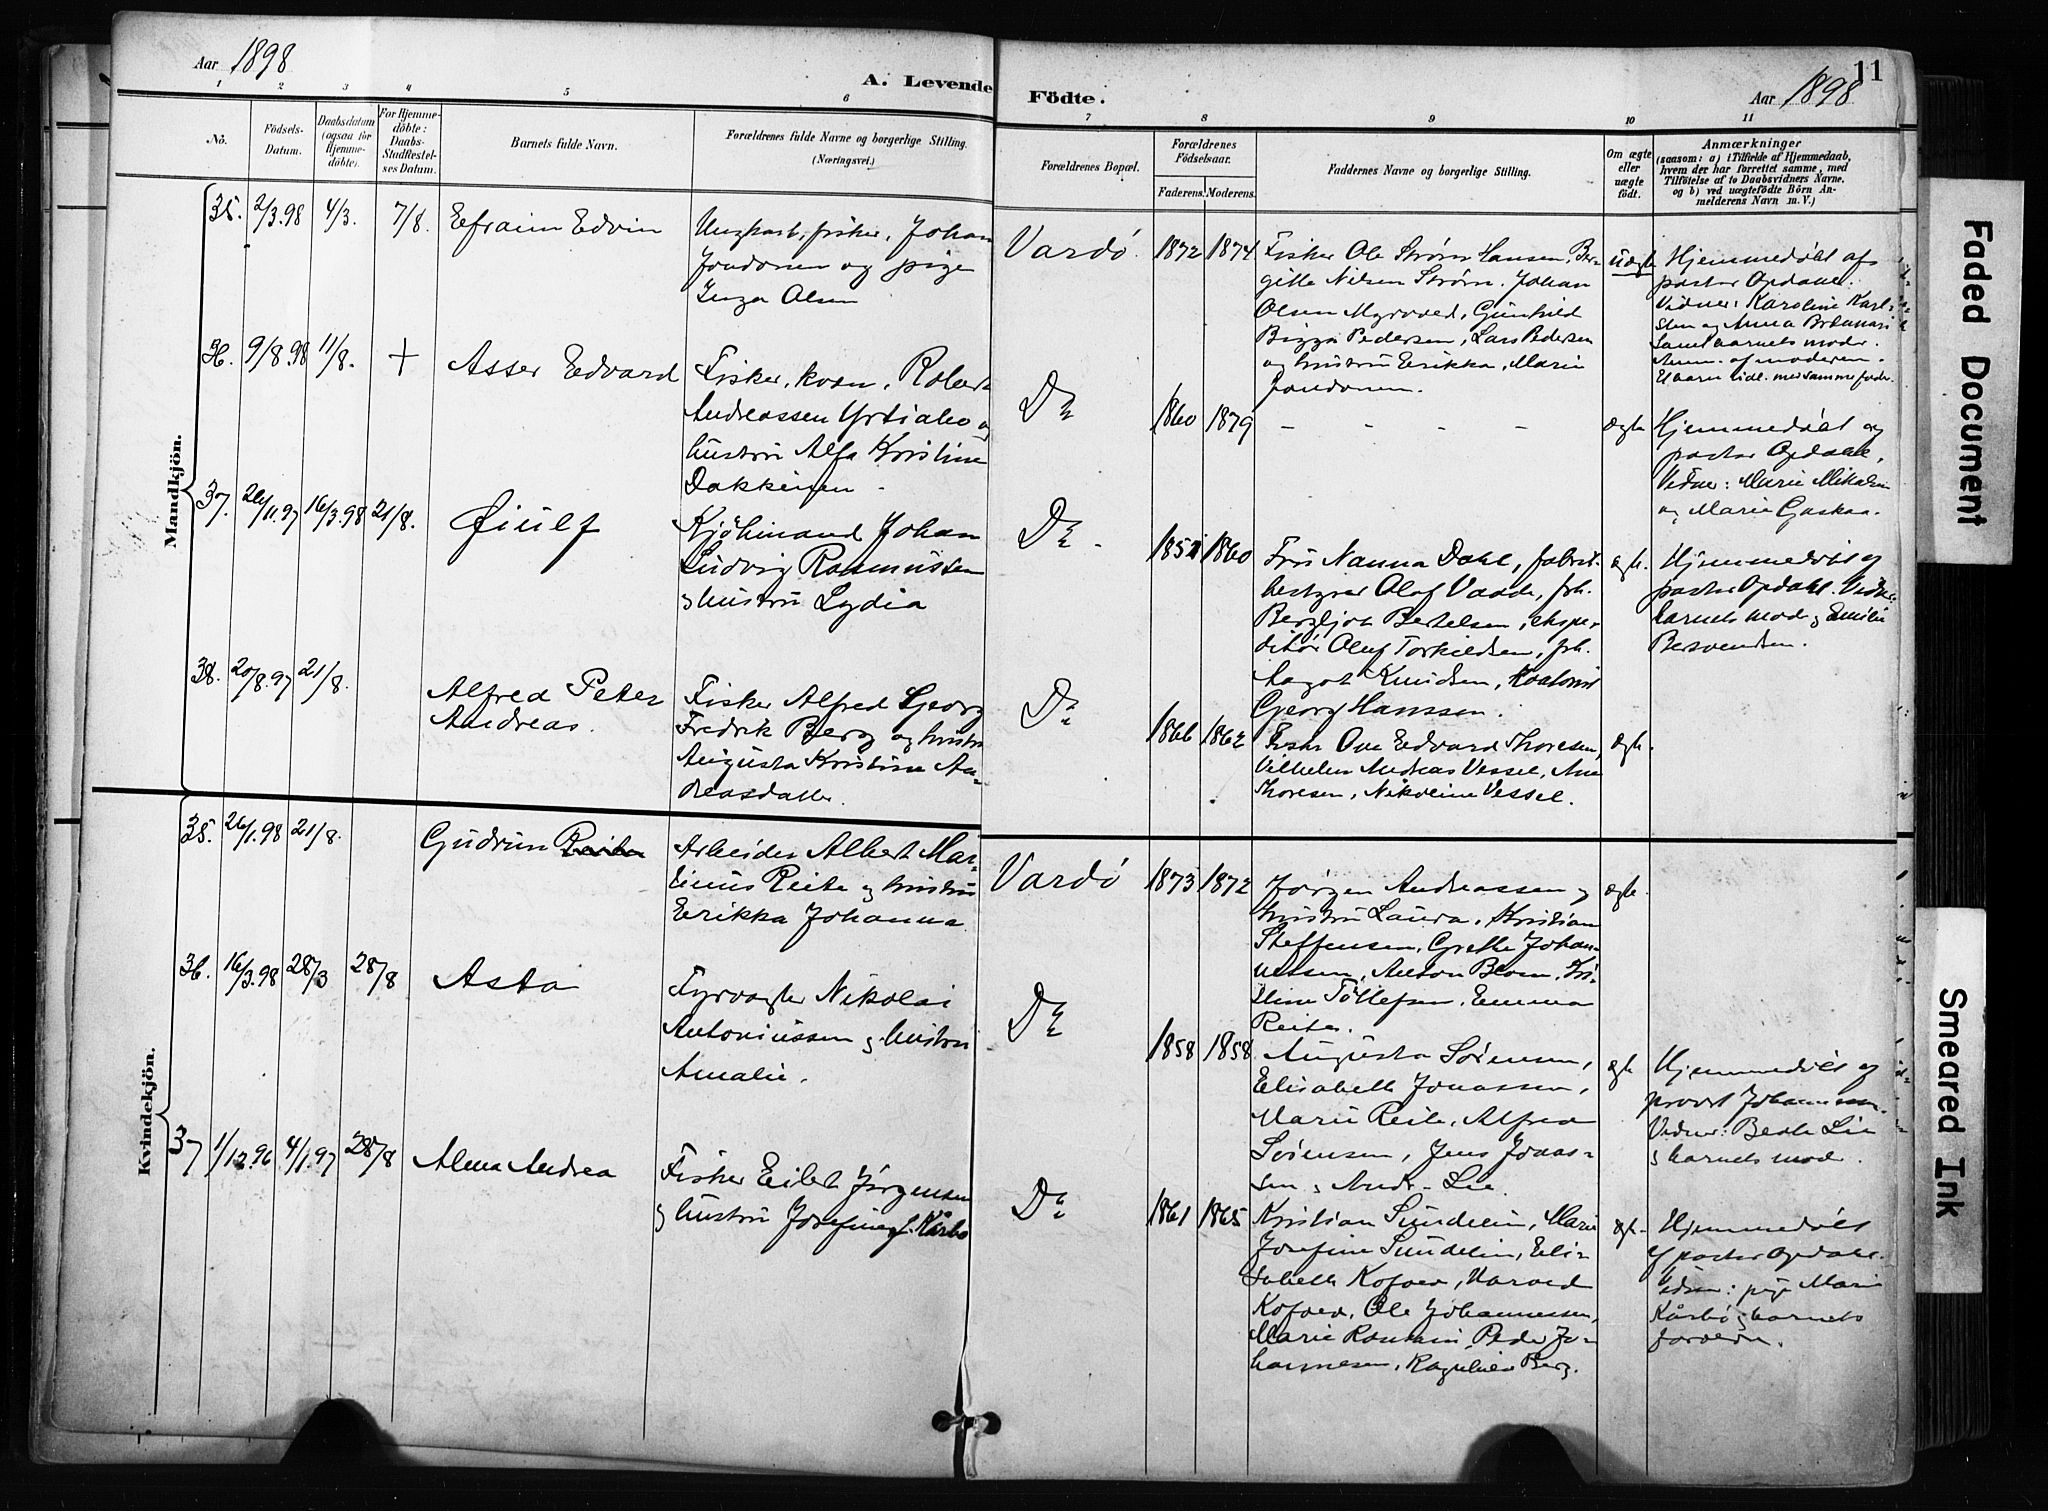 Aar 1898
A. Levende Födte.
Aar 1898
11
1 2 3 4 5 6 7 8 9 10 11
No.
Födsels-Datum.
Daabsdatum (ogsaa for Hjemme-döbte).
For Hjemme-döbte: Daabs-Stadfæstel-ses Datum.
Barnets fulde Navn.
Forældrenes fulde Navne og borgerlige Stilling. (Næringsvei.)
Forældrenes Bopæl.
Forældrenes Födselsaar.
Faderens. Moderens.
Faddernes Navne og borgerlige Stilling.
Om ægte eller uægte födt.
Anmærkninger
(saasom: a) i Tilfælde af Hjemmedaab, hvem der har forrettet samme, med Tilföielse af to Daabsvidners Navne, og b) ved uægtefödte Börn An-melderens Navn m. V.)
Mandkjön.
35. 2/3.98 4/3. 7/8. Efraim Edvin
Ungkarl, fisker, Johan
og pige
Inga Olsen
Vardö. 1872 1874
Fisker Ole Ström Hansen, Ber-
gitte Nilsen Ström, Johan
Olsen Myrvold, Gunhild
Pedersen, Lars Pedersen
og hustru Erikka, Marie
uægte
Hjemmedöbt af
pastor Opdahl.
Vidner: Karoline Karl-
sten og Anna
samt barnets moder.
Anm. af moderen.
med samme fader.
36. 9/8.98 11/8. + Asser Edvard
Fisker, kvæn, Robert
Andreassen Yrtiaho og
hustru Alfa Kristine
Dakkinen
Do 1860 1879 - - - - ægte
Hjemmedöbt af
pastor Opdahl,
Vidner: Marie Mikalsen
og Marie Gaskaa.
37. 26/11.97 16/3.98 21/8. Öiulf
Kjöbmand Johan
Ludvig Rasmussen
og hustru Lydia
Do 1852 1860
Fru Nanna Dahl, fabrik-
bestyrer Olaf Vaade, frk.
Bergljot Bertelsen, ekspe-
ditör Oluf Torkildsen, frk.
Aagot Knudsen, Kontorist
Georg Hanssen.
ægte.
Hjemmedöbt af
pastor Opdahl. Vidner:
barnets moder og Emilie
Bersvendsen.
38. 20/8.97 21/8.
Alfred Peter
Andreas.
Fisker Alfred Georg
Fredrik Berg og hustru
Augusta Kristine An-
dreasdatter.
Do 1866 1862
Fisker Ove Edvard Thoresen,
Vilhelm Andreas Vessel, Ane
Thoresen, Nikoline Vessel.
ægte.
Kvindekjön.
35. 26/1.98 21/8. Gudrun Reite
Arbeider Albert Mar-
tinus Reite og hustru
Erikka Johanna
Vardö 1873 1872
Jörgen Andreassen og
hustru Laura, Kristian
Steffensen, Grethe Johan-
nessen, Anton Beven, Kri-
stine Töllefsen, Emma
Reite.
ægte.
36. 16/3.98 28/3 28/8 Asta
Fyrvogter Nikolai
Antoniussen og hustru
Amalie.
Do 1858 1858
Augusta Sörensen,
Elisabeth Jonassen,
Marie Reite, Alfred
Sörensen, Jens Jonas-
sen og Andr. Lie.
ægte
Hjemmedöbt af
provst Johannesen.
Vidner: Berthe Lie
og barnets moder.
37 1/12.96 4/1.97 28/8 Alma Andrea
Fisker Eilert Jörgensen
og hustru Josefine f. Kårbö
Do 1861 1865
Kristian Sundelin, Marie
Josefine Sundelin, Eli-
sabeth Kofoed, Varved
Kofoed, Ole Johannessen,
Marie Rontain, Peder Jo-
hannesen, Ragnhild Berg.
ægte.
Hjemmedöbt
af pastor Opdahl.
Vidner: pige Marie
Kårbö og barnets
forældre.
Faded Document
Smeared Ink